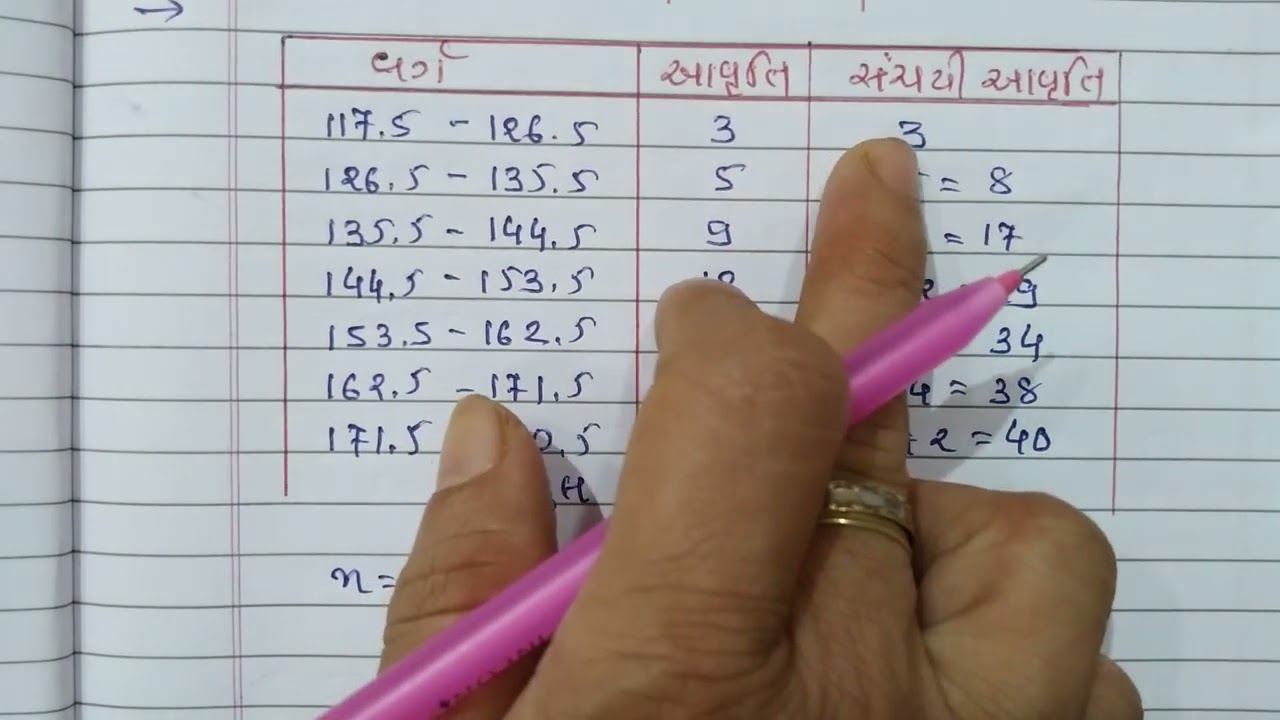 વર્ગ આવૃત્તિ સંચયી આવૃત્તિ
117.5 - 126.5 3 3
126.5 - 135.5 5 = 8
135.5 - 144.5 9 = 17
144.5 - 153.5
153.5 - 162.5 34
162.5 - 171.5 4 = 38
171.5 0.5 + 2 = 40
n =